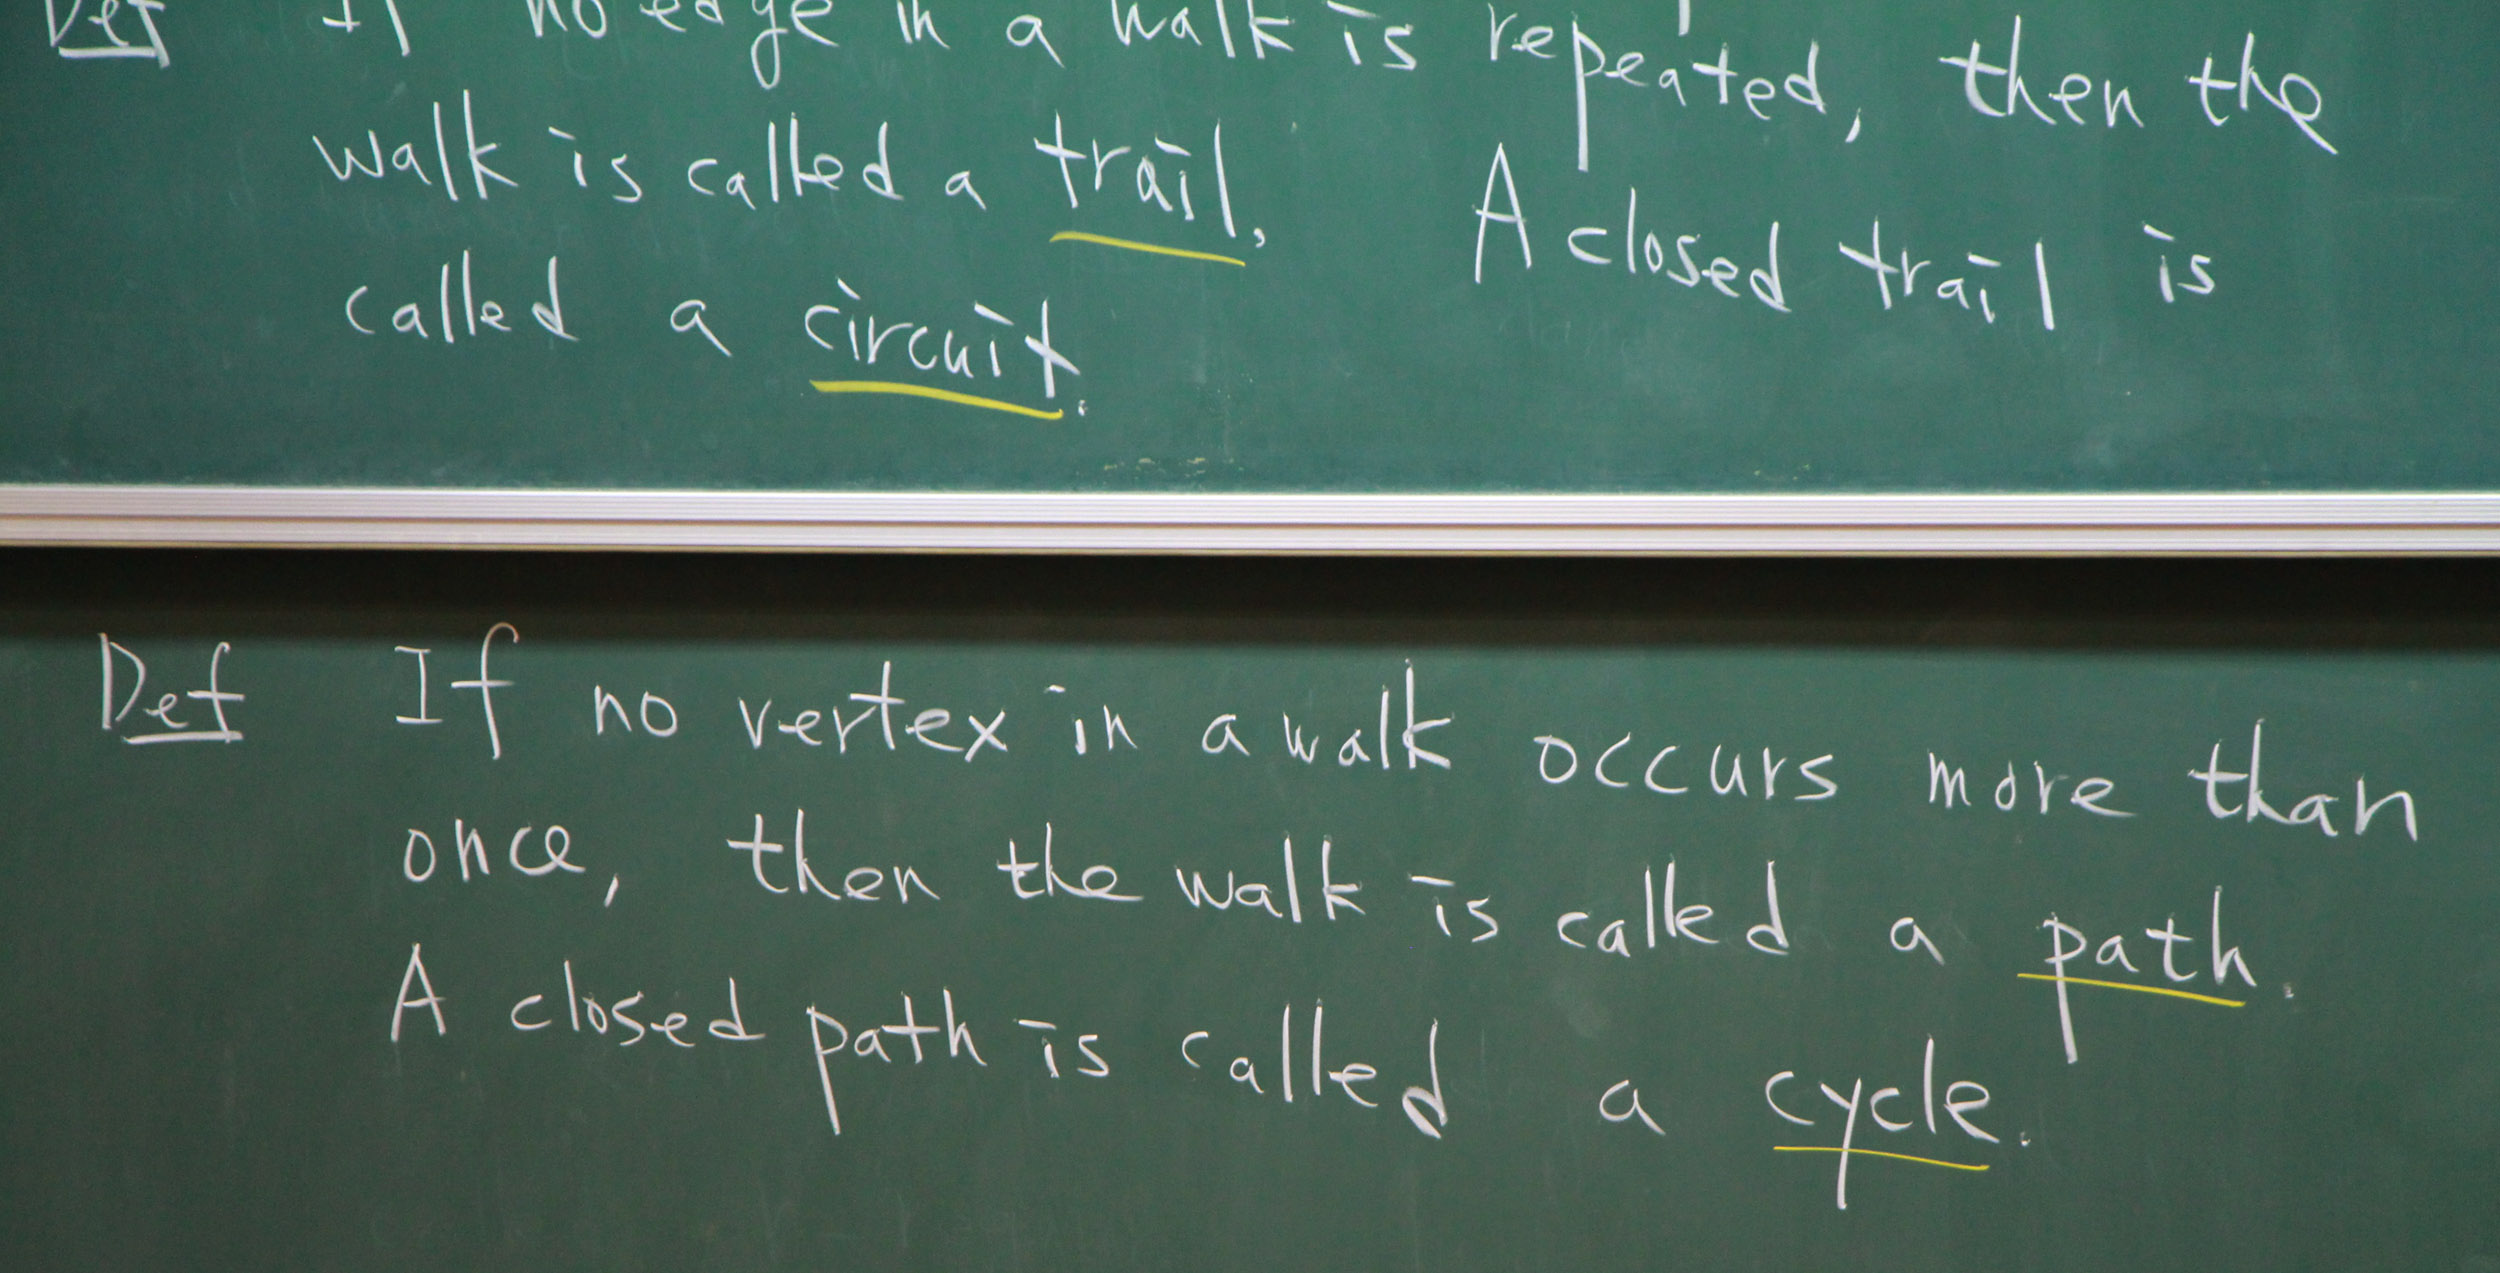 Def If no edge in a walk is repeated, then the
walk is called a trail. A closed trail is
called a circuit.
Def If no vertex in a walk occurs more than
once, then the walk is called a path.
A closed path is called a cycle.